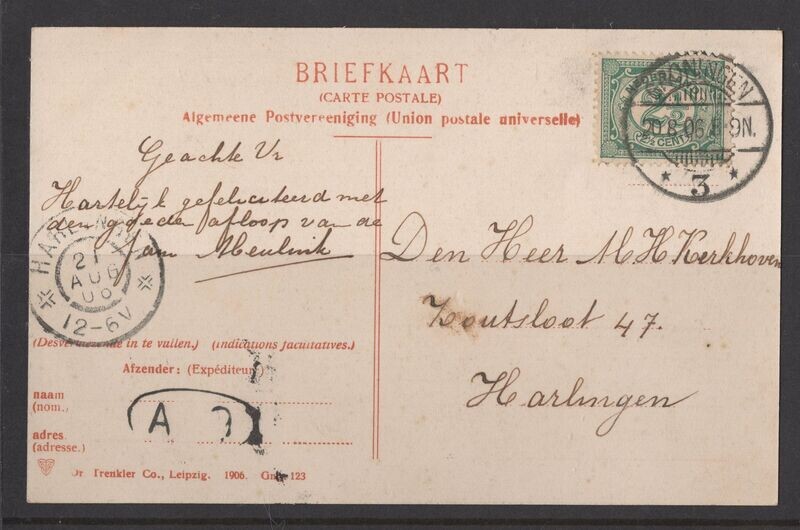 BRIEFKAART
(CARTE POSTALE)
Algemeene Postvereeniging (Union postale universelle)
2½ CENT
GRONINGEN
20.8.06 9N.
* 3 *
Geachte Vr
Hartelijk gefeliciteerd met
den goede afloop van de
fam Meulink
HARLINGEN
21
AUG
06
12-6V
Den Heer M H Kerkhoven
Zoutsloot 47.
Harlingen
(Desverkiezende in te vullen.) (Indications facultatives.)
Afzender: (Expéditeur)
naam
(nom.)
A
adres.
(adresse.)
Dr Trenkler Co., Leipzig. 1906. 123